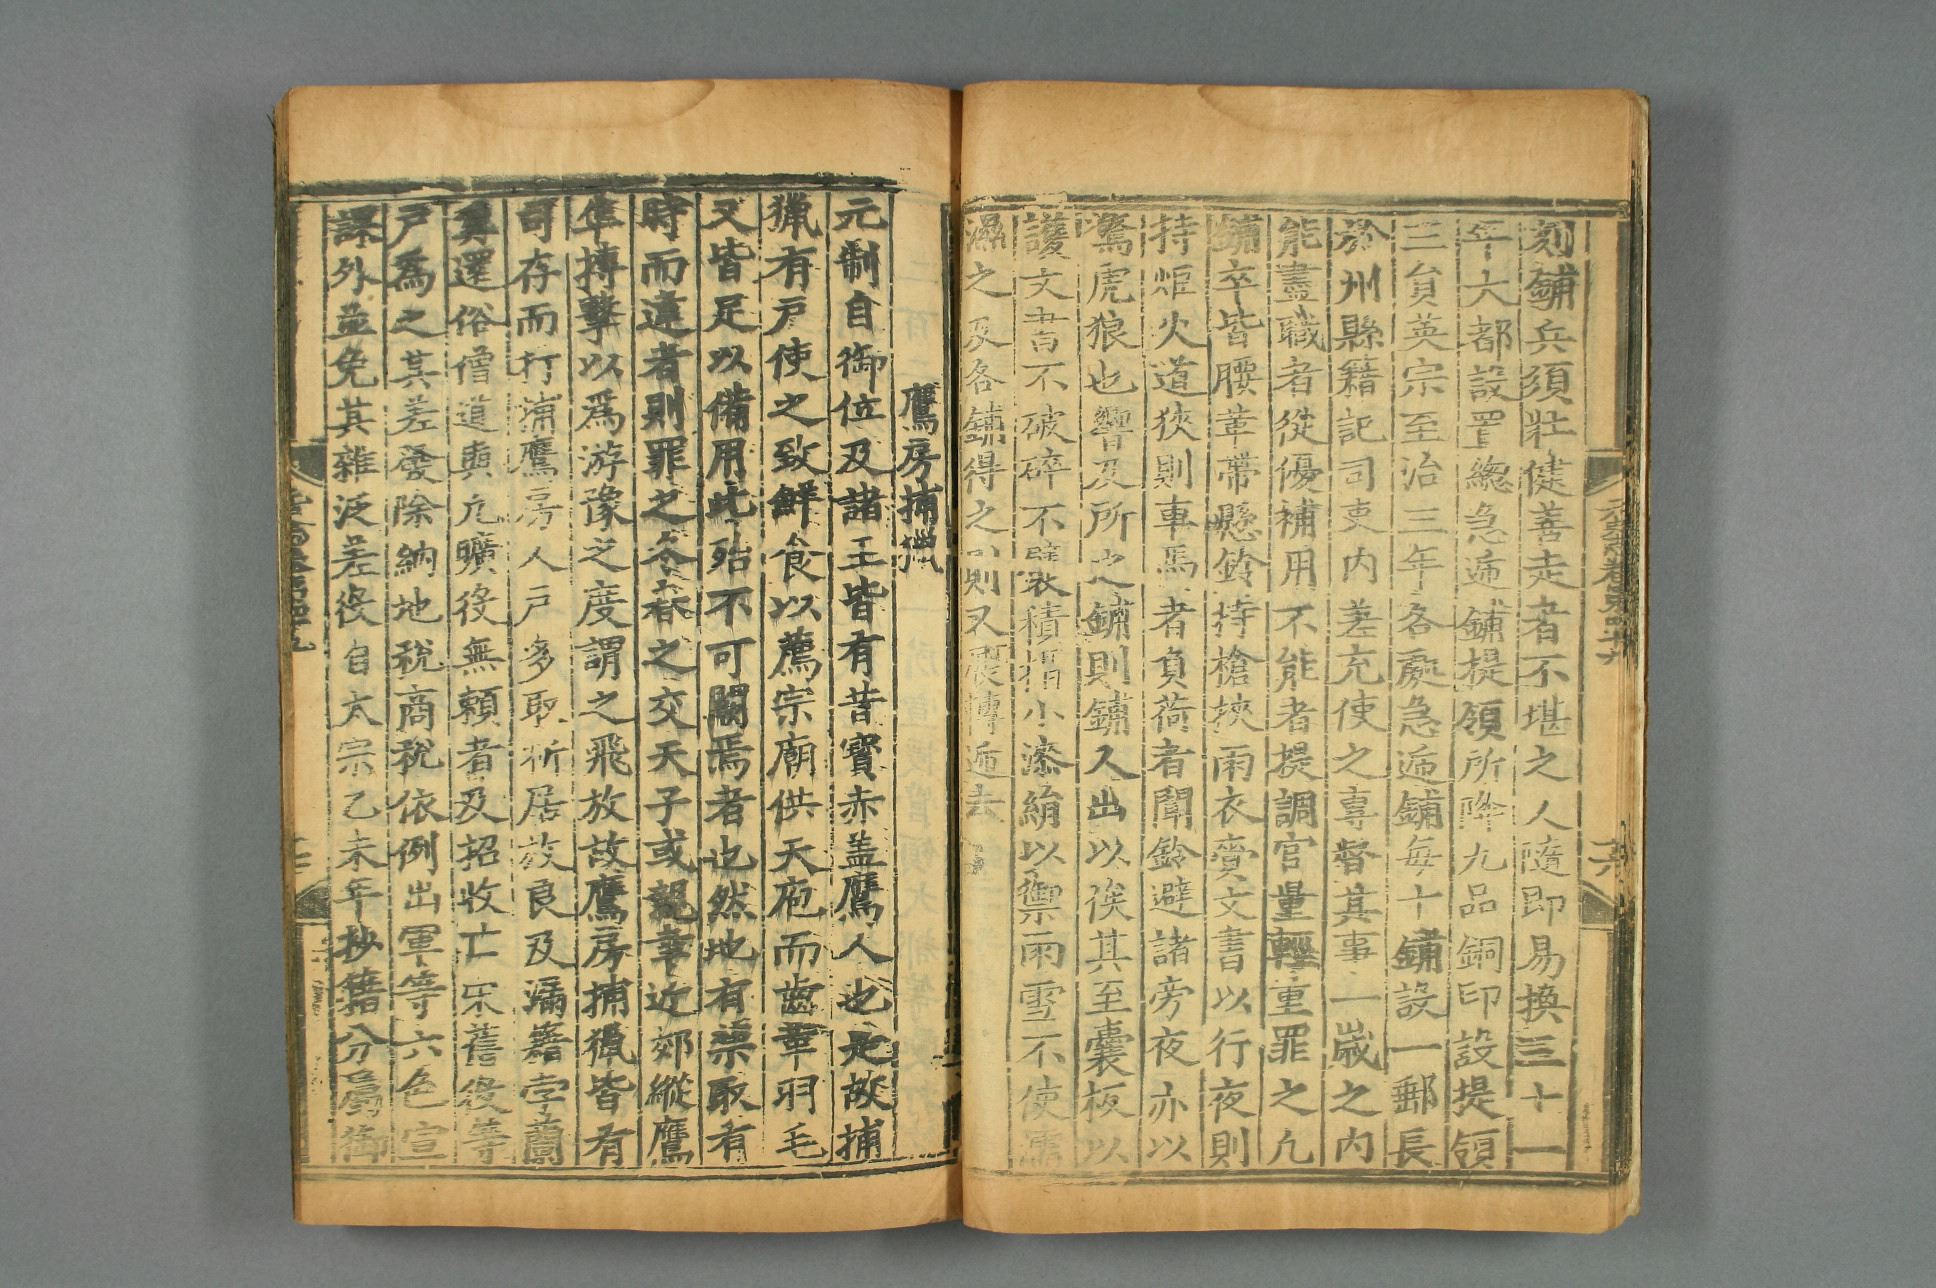 元史志卷第四十九
六
刻鋪兵須壯健善走者不堪之人隨即易換三十一
年大都設置總急遞鋪提領所降九品銅印設提領
三貟英宗至治三年各處急遞鋪每十鋪設一郵長
於州縣籍記司吏内差充使之專督其事一歲之内
能盡職者從優補用不能者提調官量輕重罪之凡
鋪卒皆腰革帶懸鈴持槍挾雨衣賫文書以行夜則
持炬火道狹則車馬者負荷者聞鈴避諸旁夜亦以
驚虎狼也響及所之鋪則鋪人出以俟其至囊板以
護文書不破碎不襞積摺小漆絹以禦雨雪不使濡
濕之及各鋪得之則又展轉遞去
鷹房捕獵
元制自御位及諸王皆有昔寳赤盖鷹人也是故捕
獵有戶使之致鮮食以薦宗廟供天庖而齒革羽毛
又皆足以備用此殆不可闕焉者也然地有禁取有
時而違者則罪之冬春之交天子或親幸近郊縱鷹
隼搏擊以爲游豫之度謂之飛放故鷹房捕獵皆有
司存而打捕鷹房人戶多取析居放良及漏籍孛蘭
奚還俗僧道與凡曠役無賴者及招收亡宋舊役等
戶爲之其差發除納地稅商稅依例出軍等六色宣
課外並免其雜泛差役自太宗乙未年抄籍分屬御